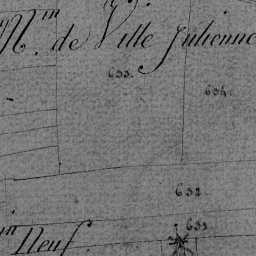 Nn. de Ville Julienne
633.
634.
632
631
Neuf